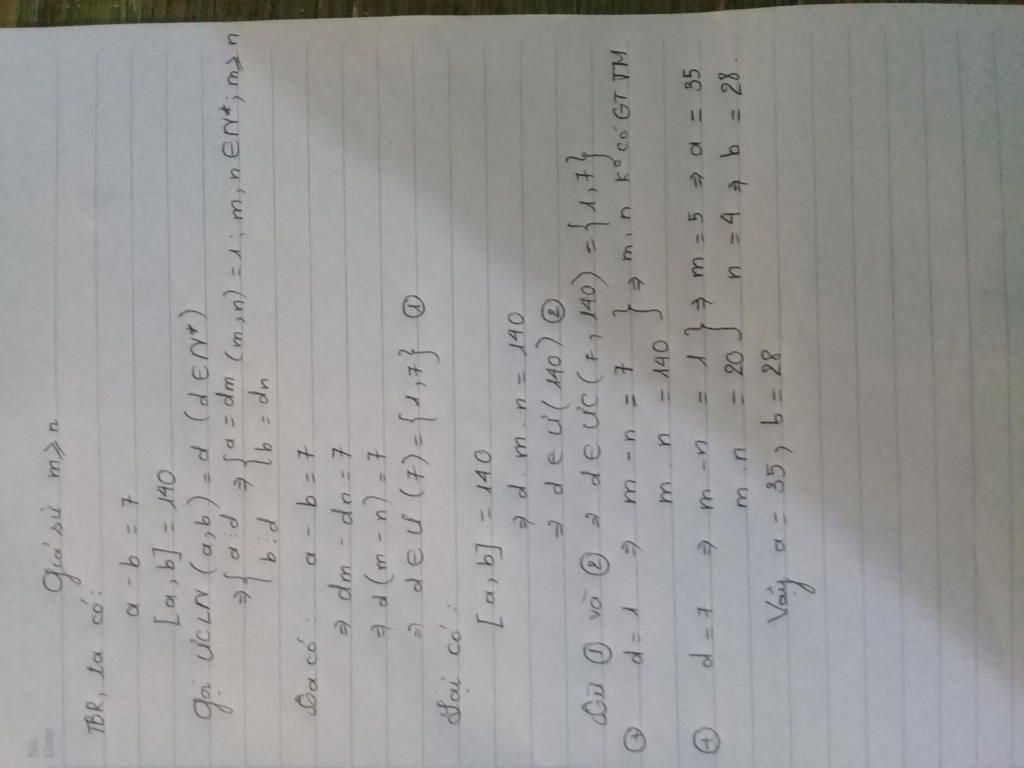 No.
Date
Giả sử m ≥ n
TBR, ta có:
a - b = 7
[a, b] = 140
Gọi ƯCLN (a, b) = d (d ∈ N*)
⇒ { a ⋮ d ⇒ { a = dm (m, n) = 1 ; m, n ∈ N*, m ≥ n
b ⋮ d b = dn
Ta có: a - b = 7
⇒ dm - dn = 7
⇒ d (m - n) = 7
⇒ d ∈ Ư (7) = {1, 7} ①
Lại có:
[a, b] = 140
⇒ d m . n = 140
⇒ d ∈ Ư (140) ②
Từ ① và ② ⇒ d ∈ ƯC (7, 140) = {1, 7}
⊕ d = 1 ⇒ m - n = 7 } ⇒ m, n k° có GT TM
m . n = 140
⊕ d = 7 ⇒ m - n = 1 } ⇒ m = 5 ⇒ a = 35
m . n = 20 n = 4 ⇒ b = 28.
Vậy a = 35, b = 28